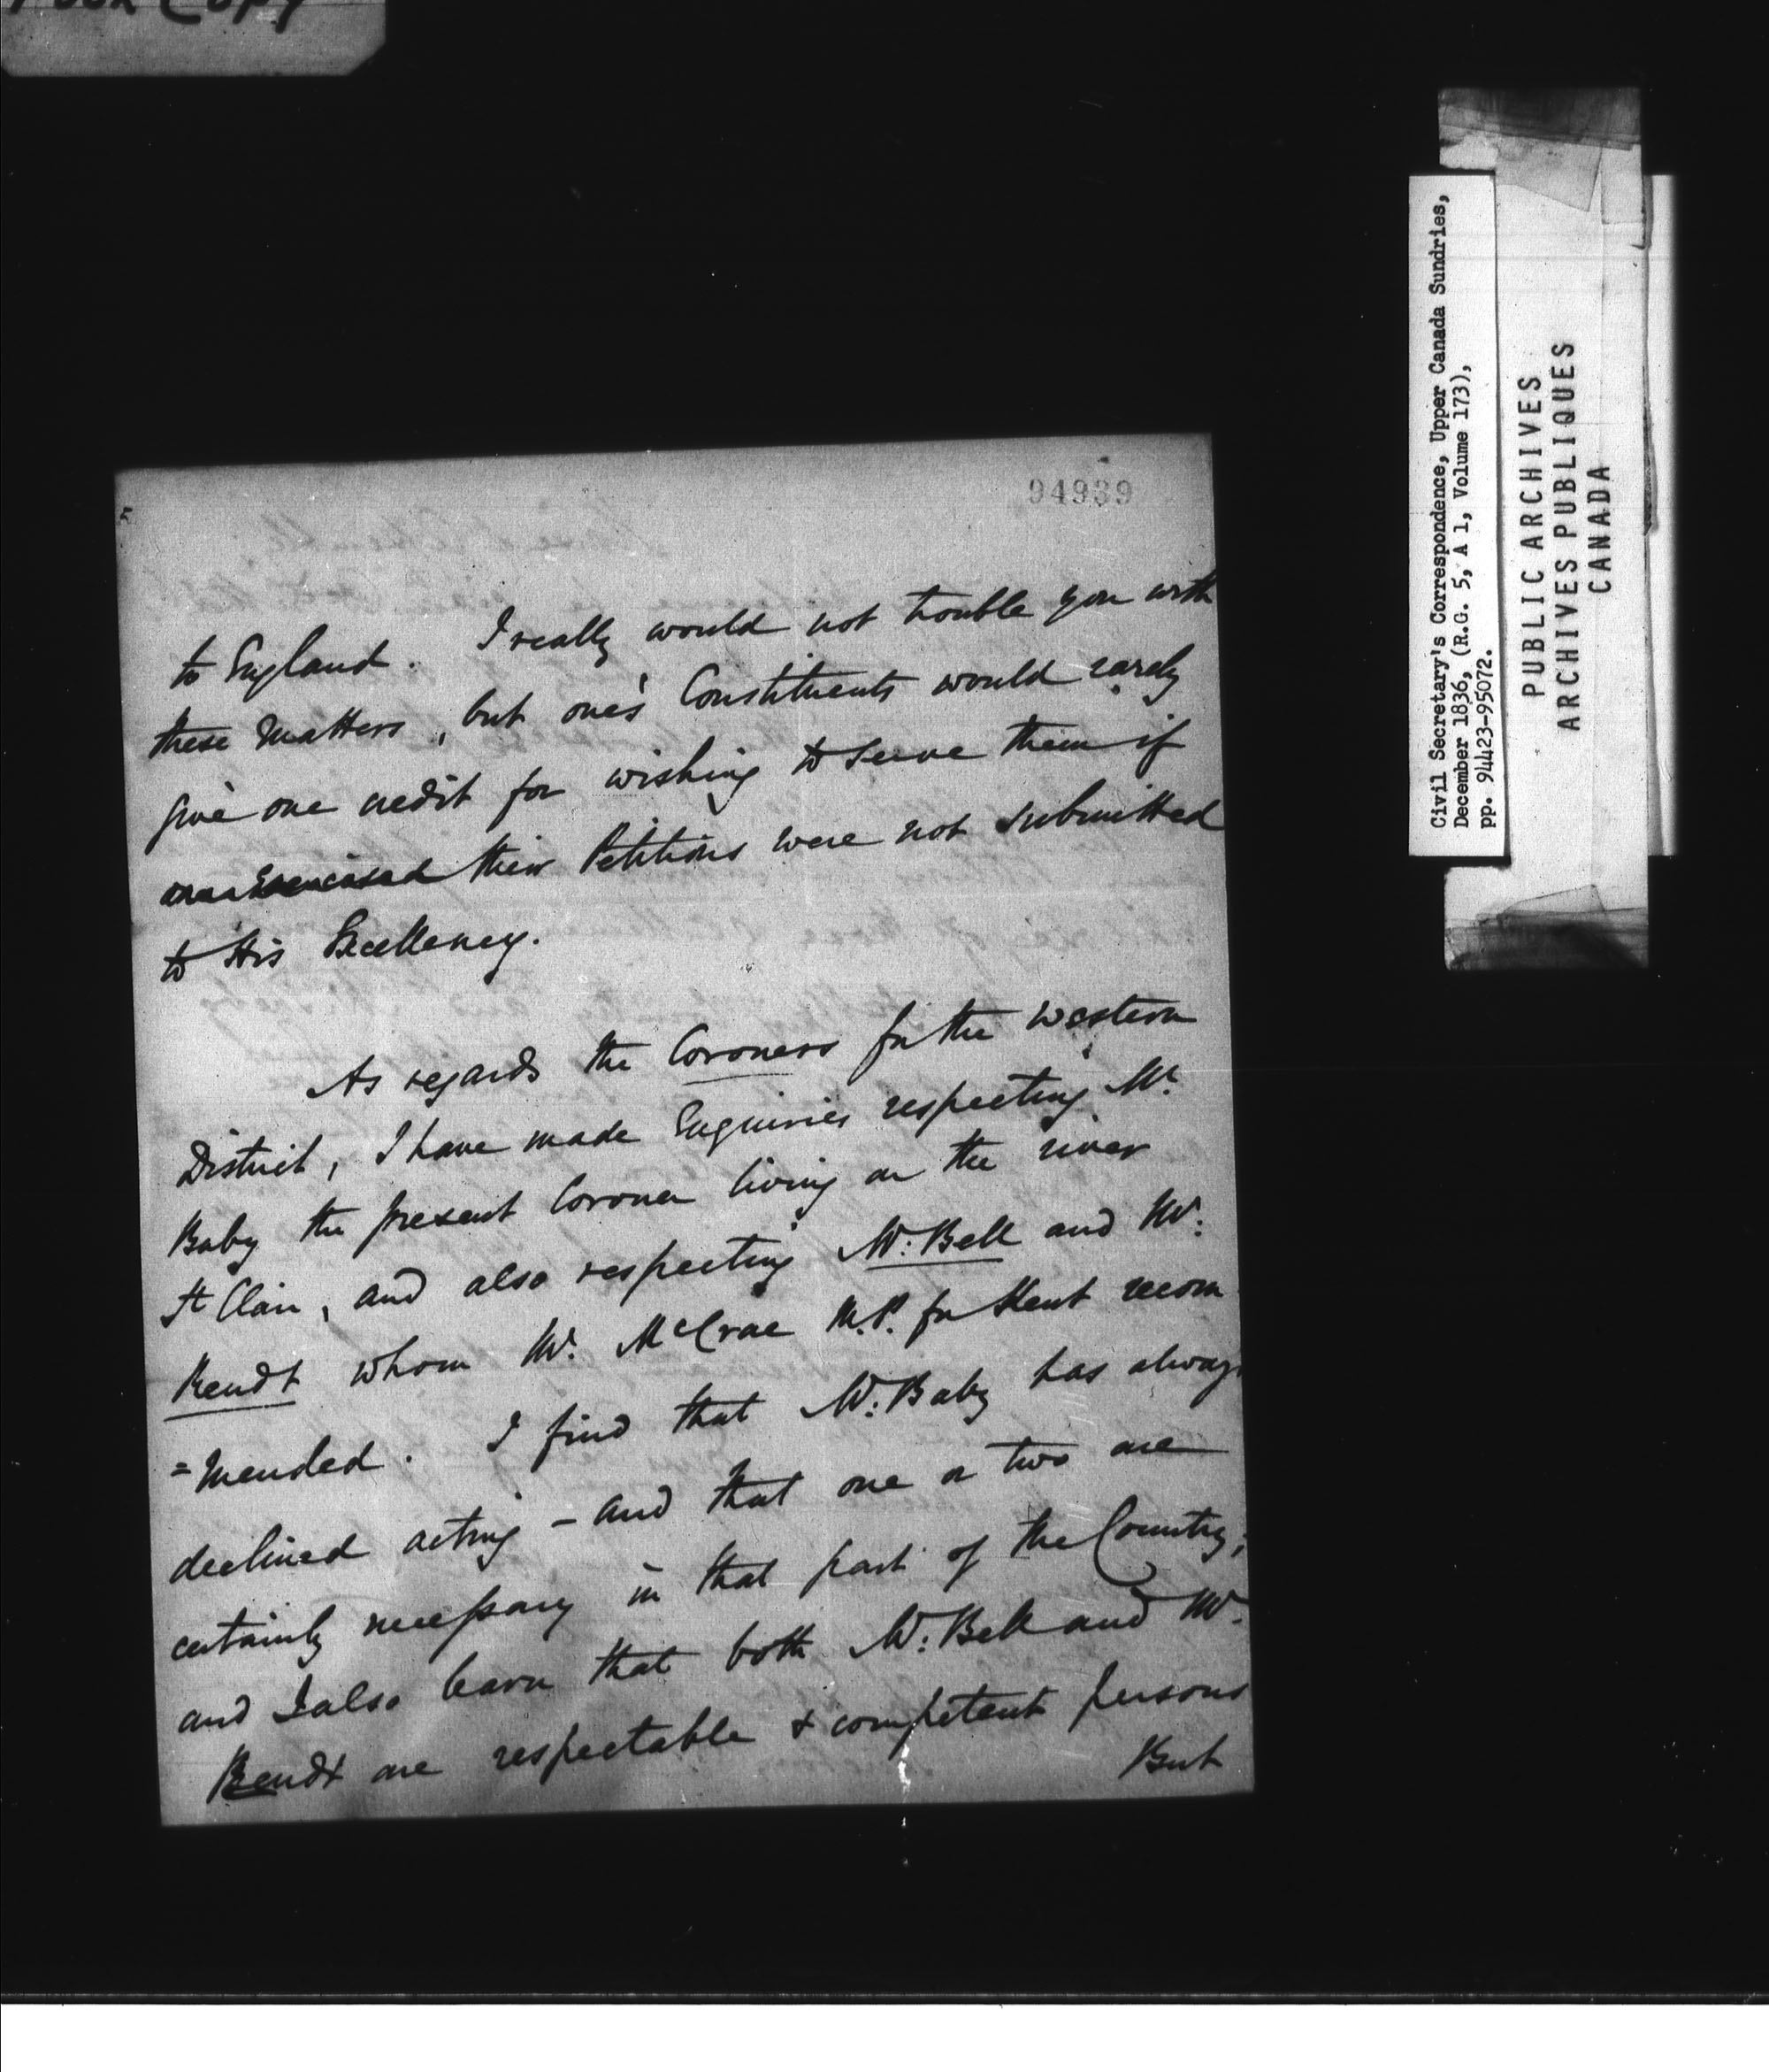 Poor Copy
94939
to England. I really would not trouble you with
these matters, but one's Constituents would rarely
give one credit for wishing to serve them if
their Petitions were not submitted
to His Excellency.
As regards the Coroners for the Western
District, I have made Enquiries respecting Mr.
Baby the present Coroner living on the river
St Clair, and also respecting Mr. Bell and Mr.
Rendt whom Mr. McCrae M.P. for Kent recom
=mended. I find that Mr. Baby has always
declined acting – and that one or two are
certainly necessary in that part of the Country;
and I also learn that both Mr. Bell and Mr.
Rendt are respectable & competent persons
But
Civil Secretary's Correspondence, Upper Canada Sundries,
December 1836, (R.G. 5, A 1, Volume 173),
pp. 94423-95072.
PUBLIC ARCHIVES
ARCHIVES PUBLIQUES
CANADA